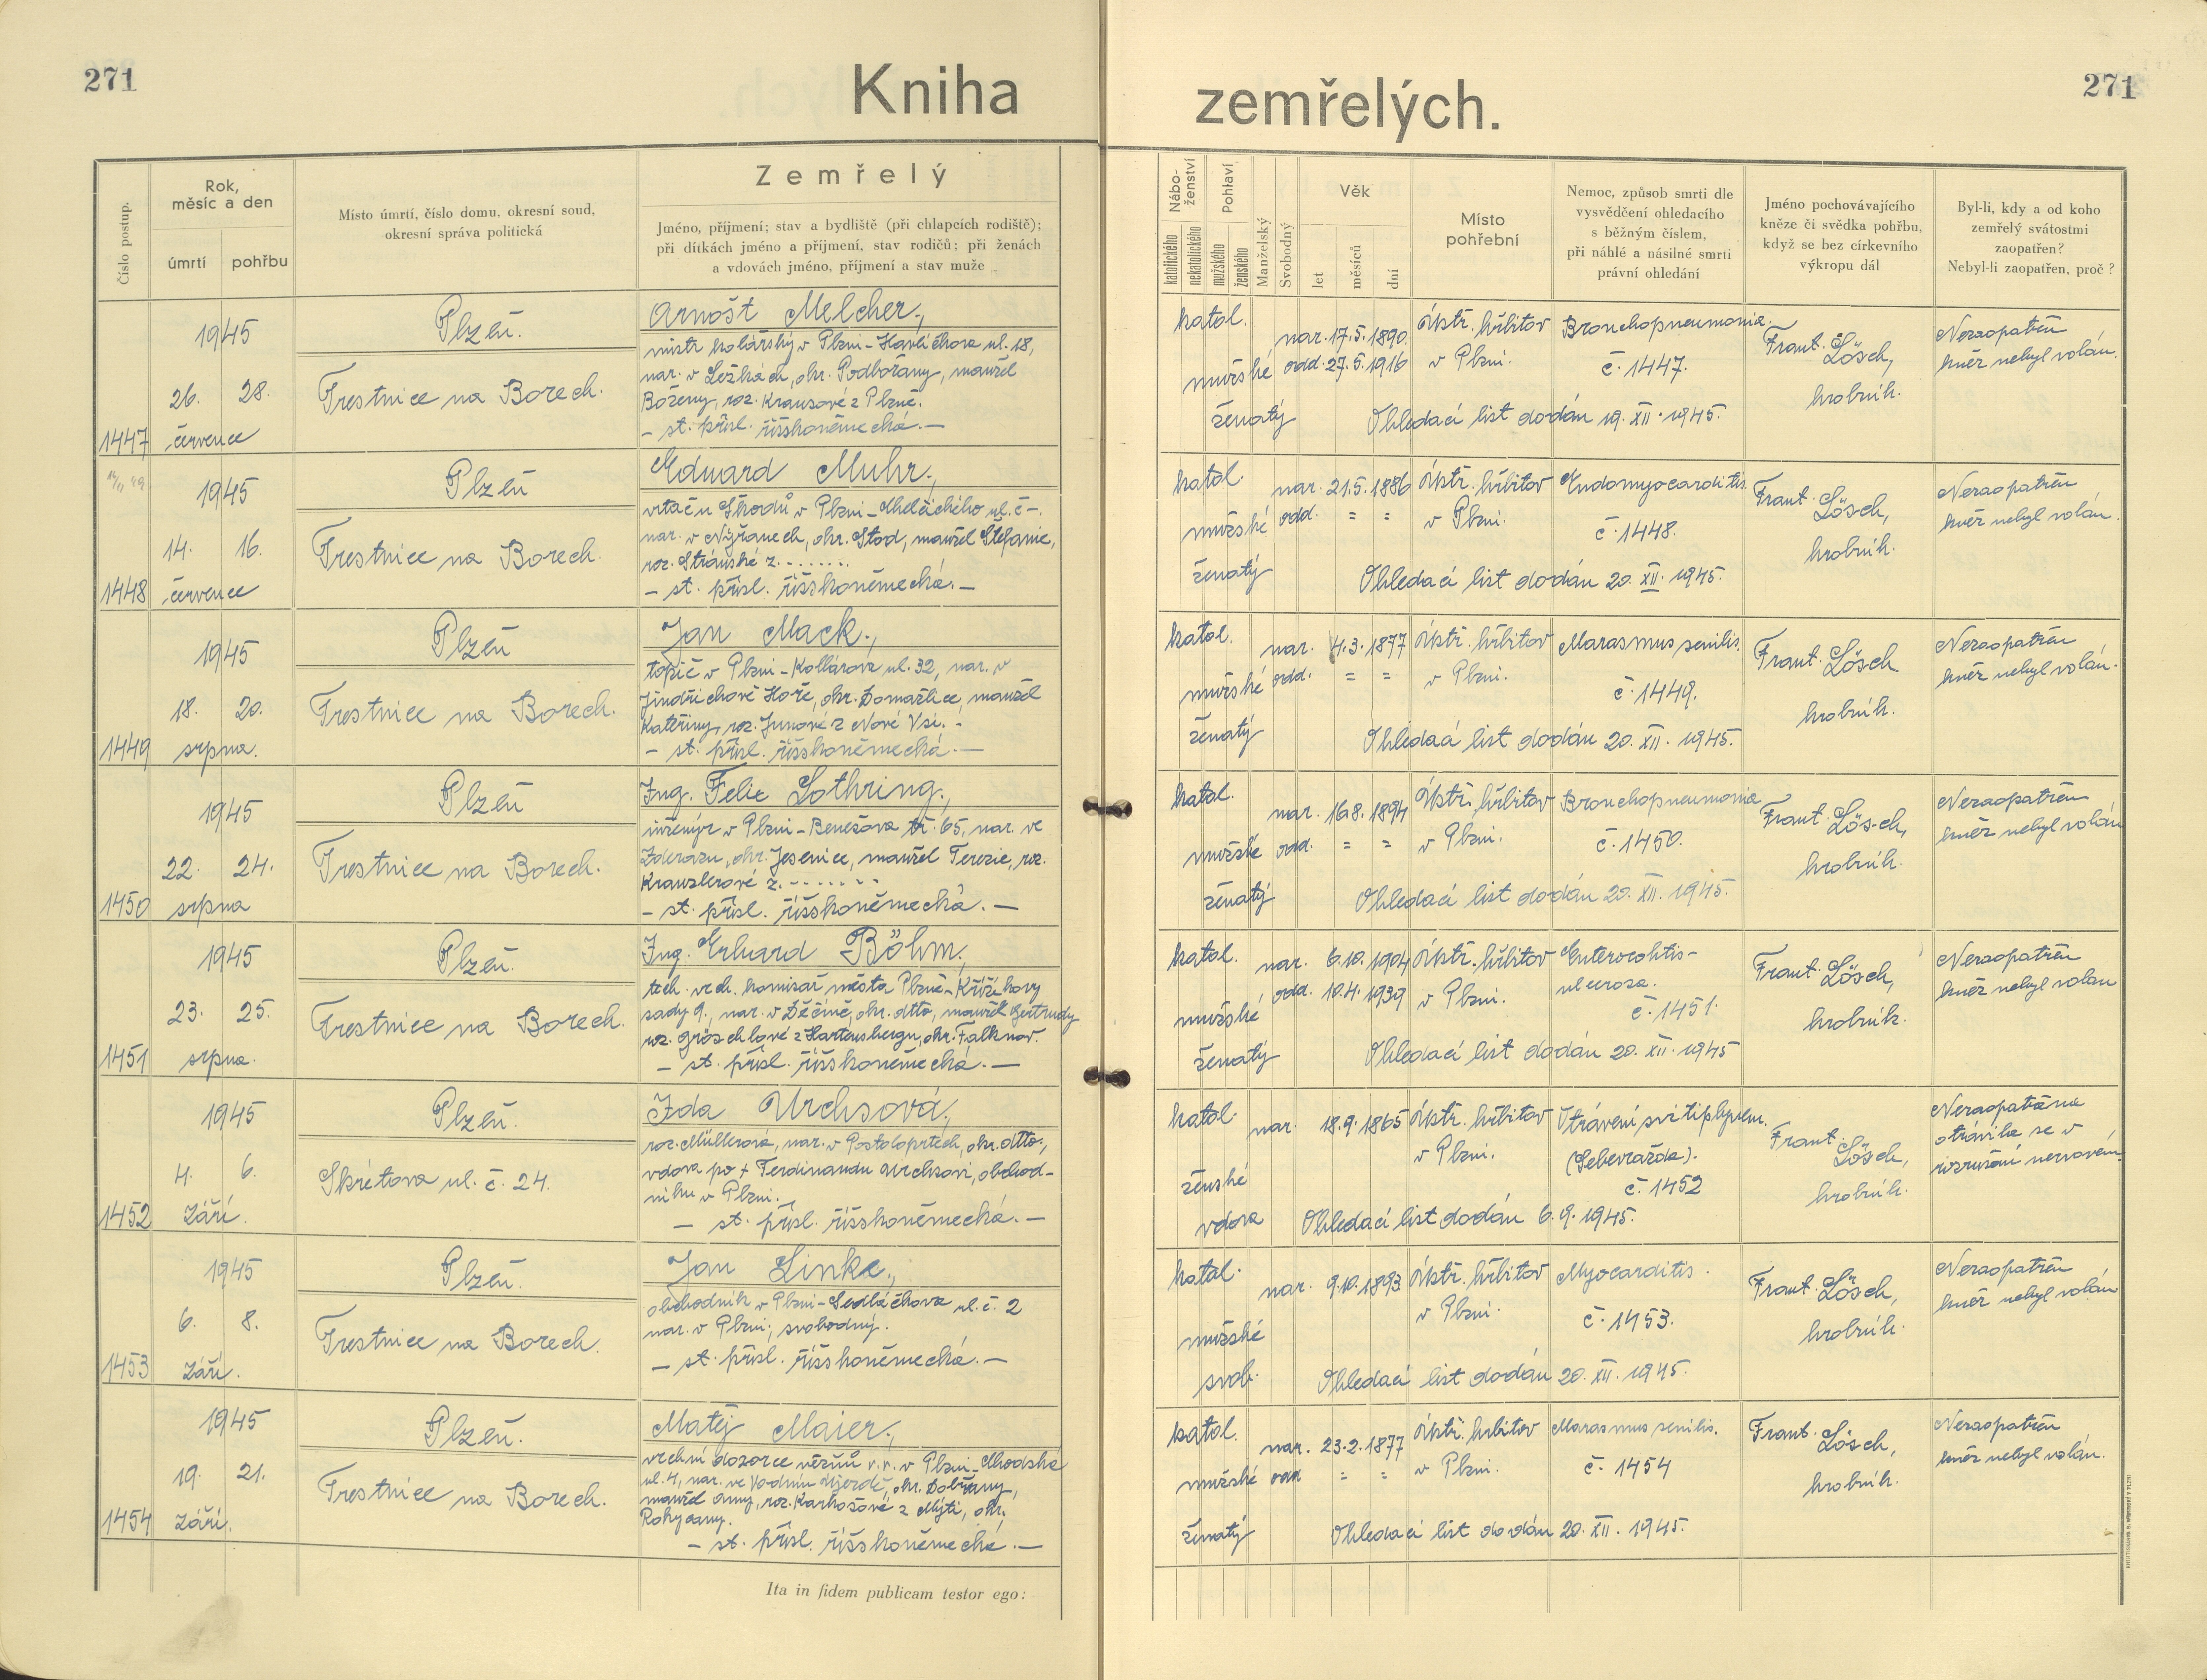 271
Kniha
zemřelých.
271
Číslo postup.
Rok,
měsíc a den
úmrtí
pohřbu
Místo úmrtí, číslo domu, okresní soud,
okresní správa politická
Zemřelý
Jméno, příjmení; stav a bydliště (při chlapcích rodiště);
při dítkách jméno a příjmení, stav rodičů; při ženách
a vdovách jméno, příjmení a stav muže
Nábo-
ženství
katolického
nekatolického
Pohlaví
mužského
ženského
Manželský
Svobodný
Věk
let
měsíců
dní
Místo
pohřební
Nemoc, způsob smrti dle
vysvědčení ohledacího
s běžným číslem,
při náhlé a násilné smrti
právní ohledání
Jméno pochovávajícího
kněze či svědka pohřbu,
když se bez církevního
výkropu dál
Byl-li, kdy a od koho
zemřelý svátostmi
zaopatřen?
Nebyl-li zaopatřen, proč?
1447
1945
26. 28.
července
Plzeň.
Trestnice na Borech.
Arnošt Melcher.,
mistr kolářský v Plzni-Havlíčkova ul. 18,
nar. v Ležkách, okr. Podbořany, manžel
Boženy, roz. Krausové z Plzně.
- st. přísl. říšskoněmecká.-
katol.
mužské
ženatý
nar. 17.5.1890
odd. 27.5.1916
Ústř. hřbitov
v Plzni.
Bronchopneumonia.
č. 1447.
Ohledací list dodán 19. XII. 1945.
Frant. Lösch,
hrobník.
Nezaopatřen
kněz nebyl volán.
1448
1945
14. 16.
července
Plzeň
Trestnice na Borech.
Eduard Muhr.,
vrtač u Škodů v Plzni- ul. č -.
nar. v Nýřanech, okr. Stod, manžel Štefanie,
roz. Stránské z.......
- st. přísl. říšskoněmecká.-
katol.
mužské
ženatý
nar. 21.5.1886
odd. = =
Ústř. hřbitov
v Plzni.
Endomyocarditis.
č. 1448.
Ohledací list dodán 20. XII. 1945.
Frant. Lösch,
hrobník.
Nezaopatřen
kněz nebyl volán.
1449
1945
18. 20.
srpna.
Plzeň
Trestnice na Borech.
Jan Mack.,
topič v Plzni-Kollárova ul. 32, nar. v
Jindřichově Hoře, okr. Domažlice, manžel
Kateřiny, roz. Junové z Nové Vsi.-
- st. přísl. říšskoněmecká.-
katol.
mužské
ženatý
nar. 4.3.1877
odd. = =
Ústř. hřbitov
v Plzni.
Marasmus senilis.
č. 1449.
Ohledací list dodán 20. XII. 1945.
Frant. Lösch
hrobník.
Nezaopatřen
kněz nebyl volán.
1450
1945
22. 24.
srpna
Plzeň
Trestnice na Borech.
Ing. Felix Lothring.,
inženýr v Plzni-Benešova tř. 65, nar. ve
Zderazu, okr. Jesenice, manžel Terezie, roz.
Kranzlerové z.......
- st. přísl. říšskoněmecká.-
katol.
mužské
ženatý
nar. 16.8.1894
odd. = =
Ústř. hřbitov
v Plzni.
Bronchopneumonia
č. 1450.
Ohledací list dodán 20. XII. 1945.
Frant. Lösch,
hrobník.
Nezaopatřen
kněz nebyl volán
1451
1945
23. 25.
srpna.
Plzeň.
Trestnice na Borech.
Ing. Erhard Böhm.,
tech. vrch. komisař města Plzně-Křižíkovy
sady 9., nar. v Děčíně, okr. dtto, manžel Gertrudy
roz. Gröschlové z Hartensbergu, okr. Falknov.
- st. přísl. říšskoněmecká.-
katol.
mužské
ženatý
nar. 6.10.1904
odd. 10.4.1939
Ústř. hřbitov
v Plzni.
Enterocolitis-
ulcerosa.
č. 1451.
Ohledací list dodán 20. XII. 1945
Frant. Lösch,
hrobník.
Nezaopatřen
kněz nebyl volán
1452
1945
4. 6.
září.
Plzeň.
Skrétova ul. č. 24.
Ida Urchsová.,
roz. Müllerová, nar. v Postoloprtech, okr. dtto.,
vdova po + Ferdinandu Urchsovi, obchod-
níku v Plzni.
- st. přísl. říšskoněmecká.-
katol.
ženské
vdova
nar. 18.9.1865
Ústř. hřbitov
v Plzni.
Otrávení svítiplynem.
(Sebevražda).
č. 1452
Ohledací list dodán 6.9.1945.
Frant. Lösch,
hrobník.
Nezaopatřena
otrávila se v
rozrušení nervovém.
1453
1945
6. 8.
září.
Plzeň.
Trestnice na Borech.
Jan Linke.,
obchodník v Plzni-Sedláčkova ul. č. 2
nar. v Plzni; svobodný.
- st. přísl. říšskoněmecká.-
katol.
mužské
svob.
nar. 9.10.1893
Ústř. hřbitov
v Plzni.
Myocarditis.
č. 1453.
Ohledací list dodán 20. XII. 1945.
Frant. Lösch,
hrobník.
Nezaopatřen
kněz nebyl volán
1454
1945
19. 21.
září.
Plzeň.
Trestnice na Borech.
Matěj Maier.,
vrchní dozorce vězňů v.v. v Plzni-Chodská
ul. 4, nar. ve Vodním Újezdě, okr. Dobřany,
manžel Anny, roz. Karhošové z Mýti, okr.
Rokycany.
- st. přísl. říšskoněmecká.-
katol.
mužské
ženatý
nar. 23.2.1877
odd = =
Ústř. hřbitov
v Plzni.
Marasmus senilis.
č. 1454
Ohledací list dodán 20. XII. 1945.
Frant. Lösch,
hrobník.
Nezaopatřen
kněz nebyl volán.
Ita in fidem publicam testor ego: